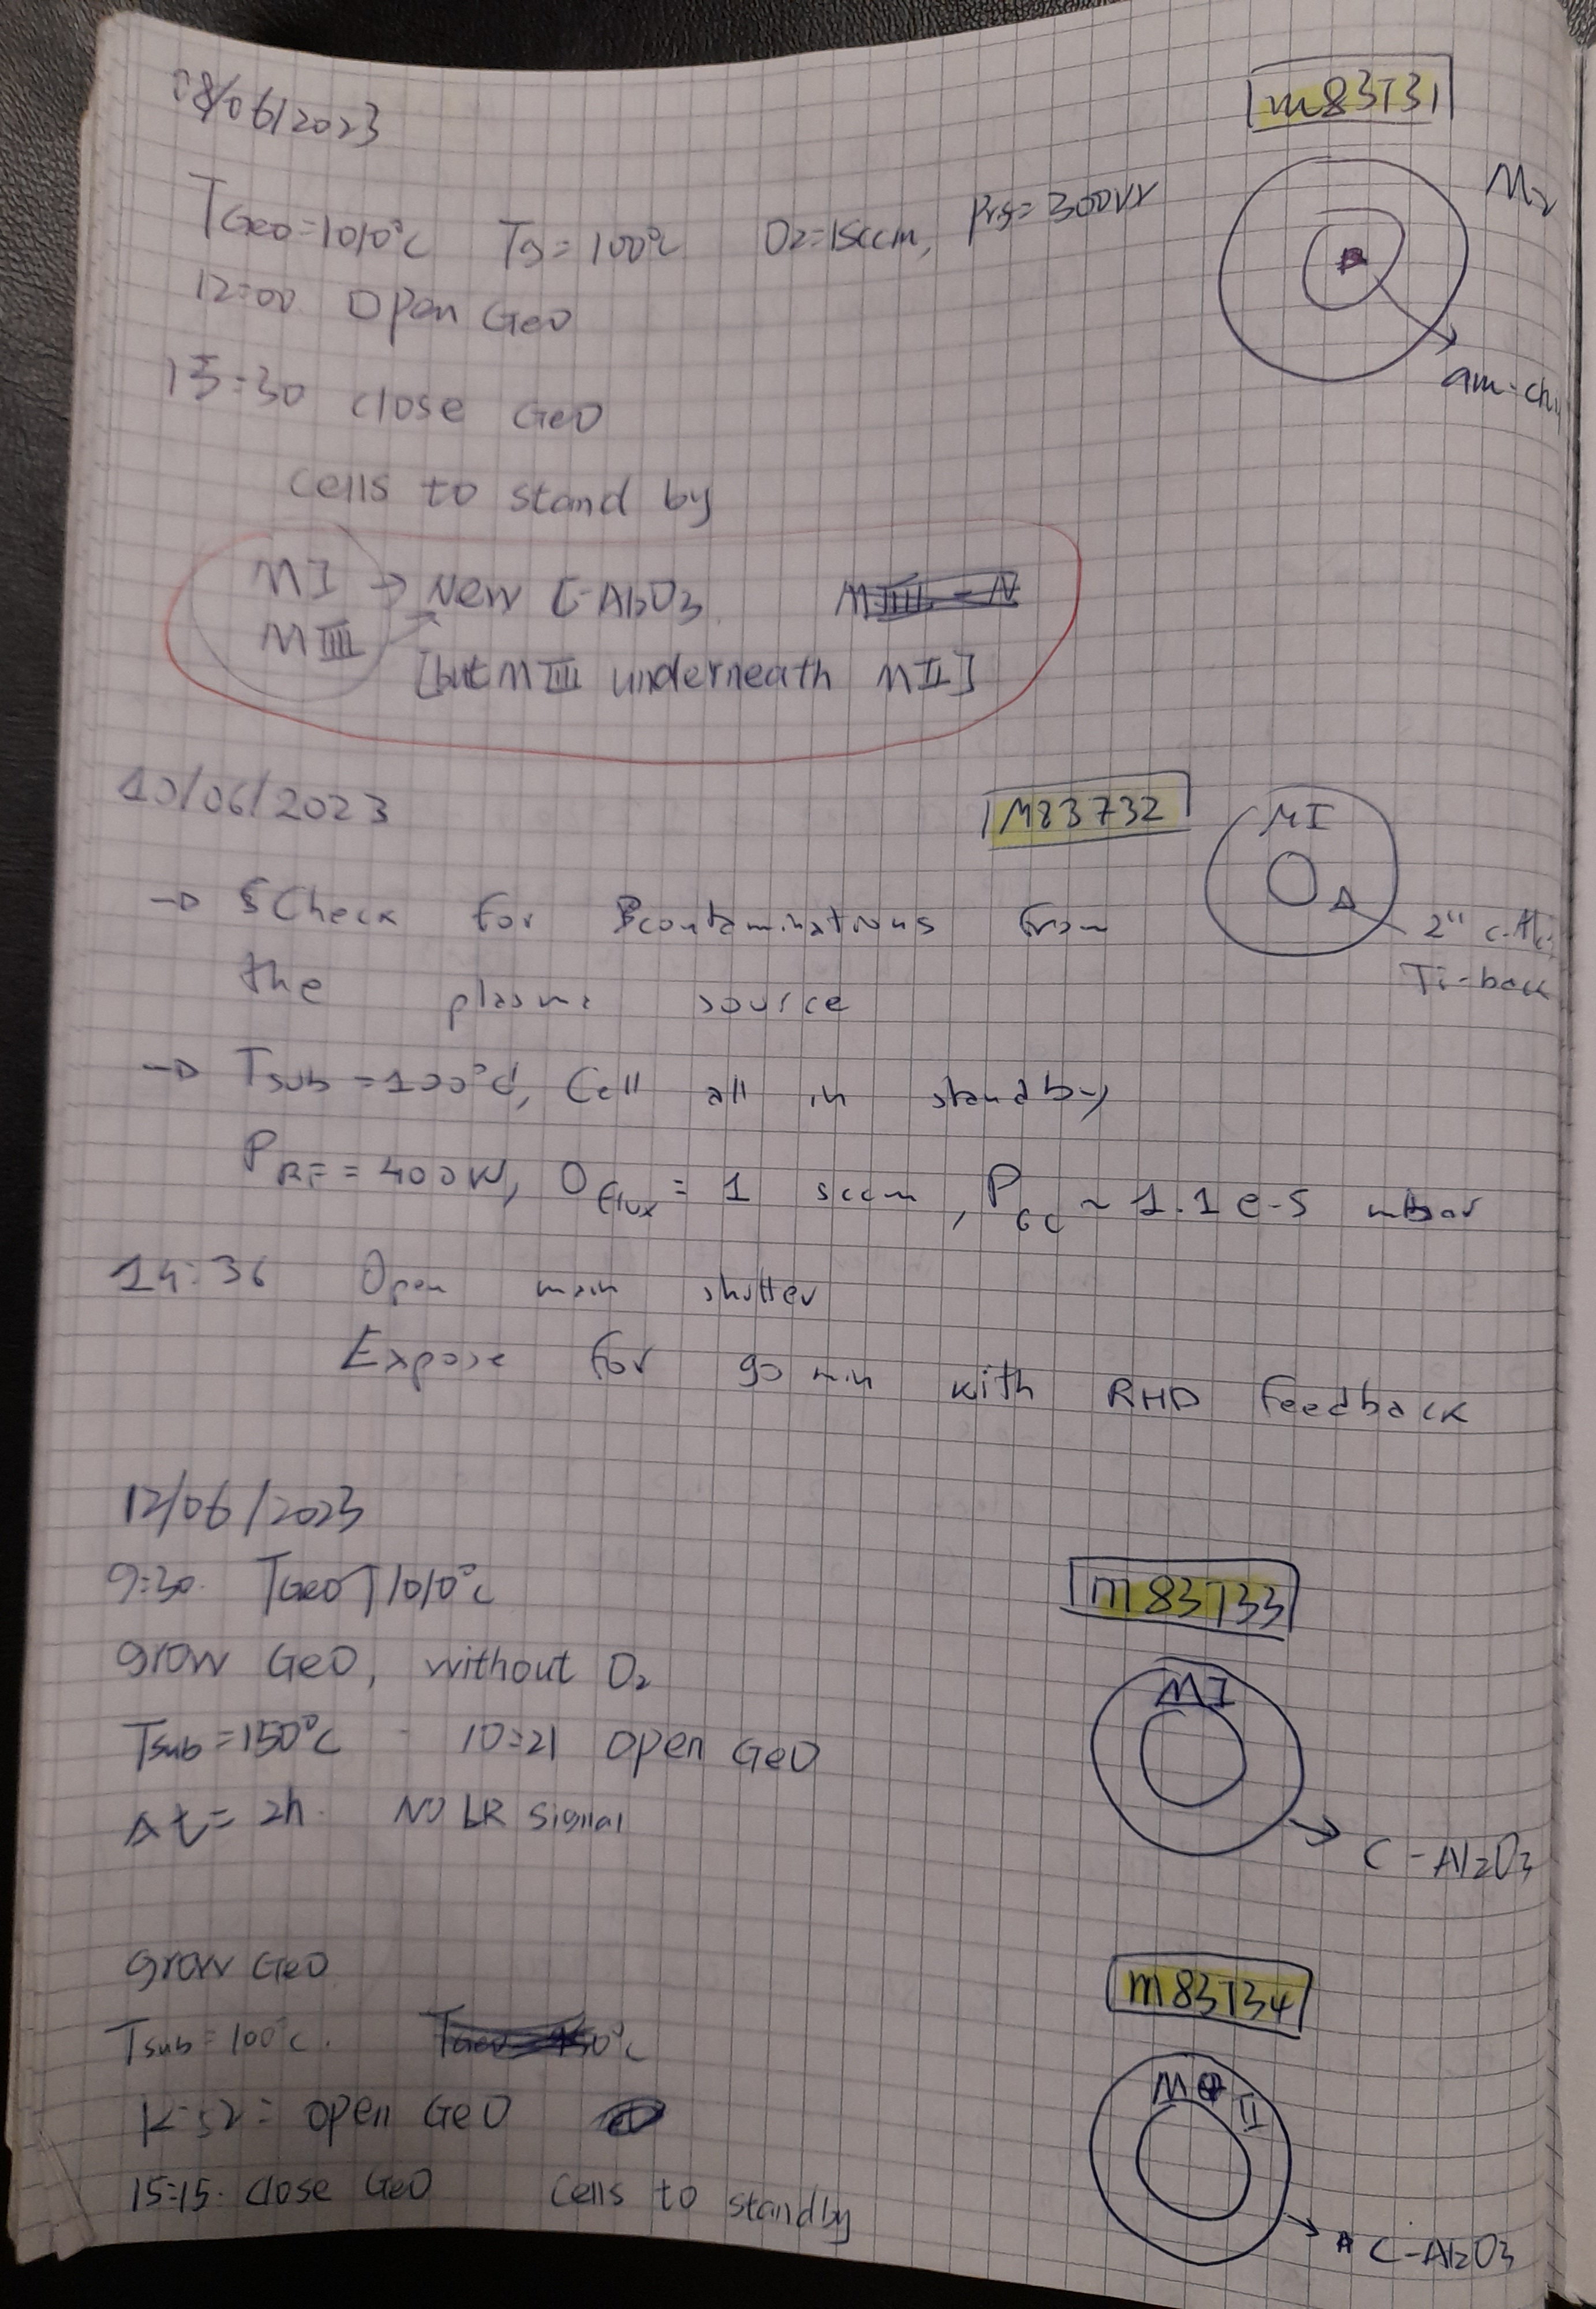 08/06/2023
m83731
TGeO=1010°C Ts=100°C O2=1sccm, Prf=300W
12:00 Open GeO
am-ch
15:30 close GeO
cells to stand by
MI → New C-Al2O3
MIII
[but MIII underneath MII]
10/06/2023
M83732
MI
→ Check for contaminations from
2" c-Al
the plasma source
Ti-back
→ Tsub =100°C, Cell all in standby
PRF = 400W, Oflux = 1 sccm, PGC ~ 1.1e-5 mbar
14:36 Open main shutter
Expose for 90 min with RHD feedback
12/06/2023
9:30. TGeO↑1010°C
m83733
grow GeO, without O2
MI
Tsub=150°C - 10:21 open GeO
Δt= 2h. NO LR signal
C-Al2O3
grow GeO
m83734
Tsub=100°C.
M II
12:52: open GeO
15:15. close GeO cells to standby
C-Al2O3